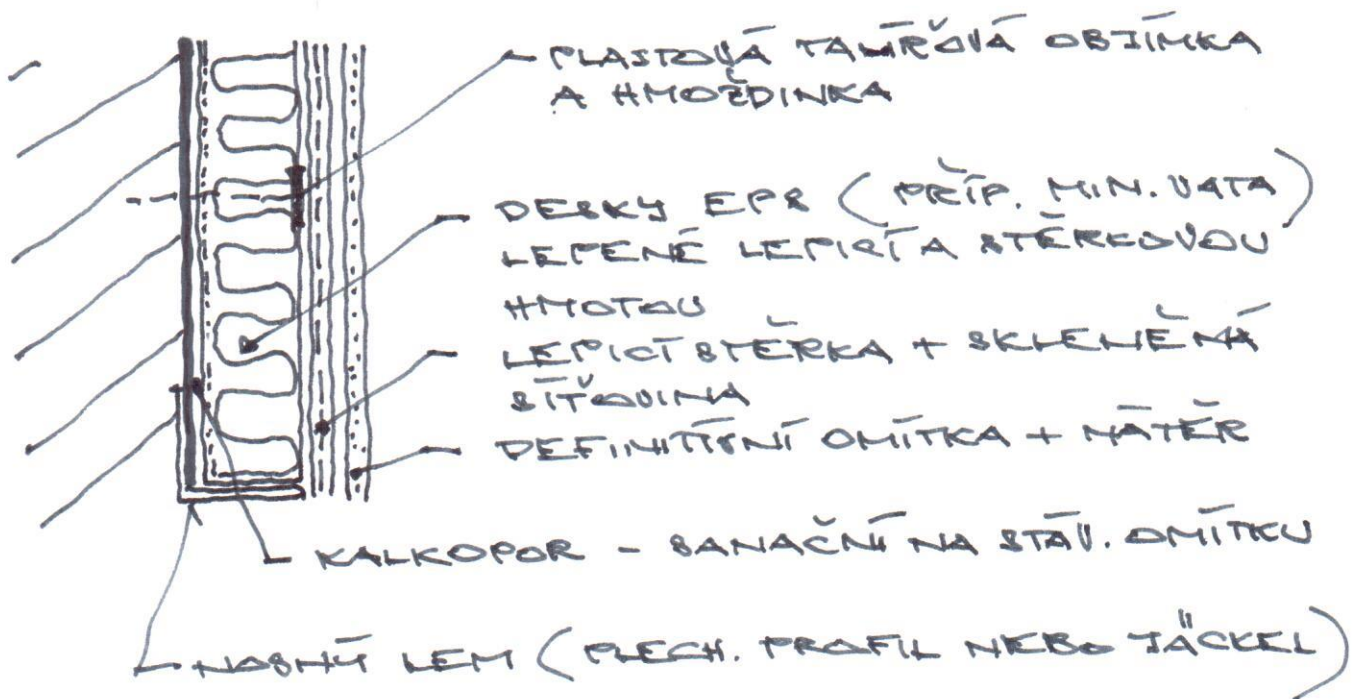 PLASTOVÁ TALÍŘOVÁ OBJÍMKA
A HMOŽDINKA
DESKY EPS (PŘÍP. MIN. VATA)
LEPENÉ LEPICÍ A STĚRKOVOU
HMOTOU
LEPICÍ STĚRKA + SKLENĚNÁ
SÍŤOVINA
DEFINITIVNÍ OMÍTKA + NÁTĚR
KALKOPOR - SANAČNÍ NA STÁV. OMÍTKU
NOSNÝ LEM (PLECH. PROFIL NEBO JÄCKEL)